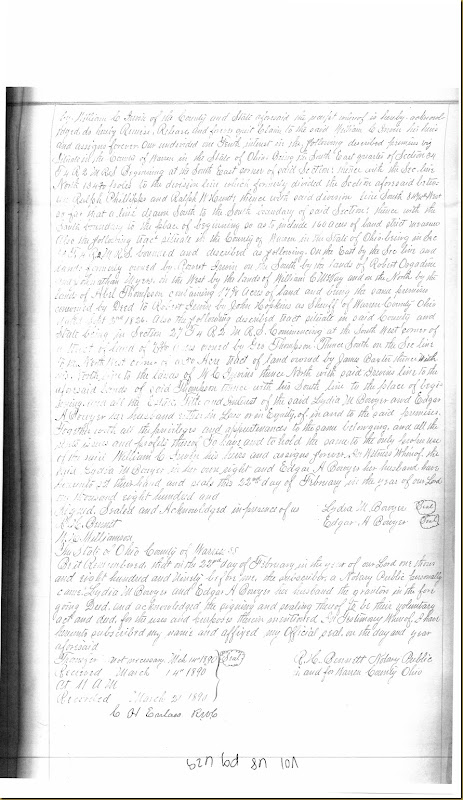 by William C Irwin of the County and State aforesaid the receipt whereof is hereby acknowl
edged do hereby Remise, Release and forever quit Claim to the said William C Irwin his heirs
and assigns forever Our undivided one Tenth interest in the following described premises viz
Situate in the County of Warren in the State of Ohio Being in South East quarter of Section 34
T 4 R 2 M Rs Beginning at the South East corner of said Section thence with the Sec line
North poles to the division line which formerly divided the Section aforesaid betwe
en Ralph Phillips and Ralph W Hunt thence with said division line South West
so far that a line drawn South to the South boundary of said Section thence with the
South boundary to the place of beginning so as to include 160 acres of land strict measure
Also the following tract situate in the County of Warren in the State of Ohio being in Sec
M R S bounded and described as follows. On the East by the Sec line and
lands formerly owned by Robert Irwin on the South by the lands of Robert
and Jonathan Myers on the West by the lands of William C McVay and on the North by the
lands of Abel Thompson containing acres of land and being the same premises
conveyed by Deed to Robert Irwin by John Hopkins as Sheriff of Warren County Ohio
dated 1826. Also the following described tract situate in said County and
State being in Section 27 T 4 R 2 M R S. Commencing at the South West corner of
a tract of land of owned by Geo Thompson Thence South on the Sec line
to the North West corner of acre tract of land owned by James Baxter thence with
his North line to the lands of W C Irwins thence North with said Irwins line to the
aforesaid lands of said Thompson thence with his South line to the place of begin
ning and all the Estate, Title and Interest of the said Lydia M Bowyer and Edgar
A Bowyer her husband either in Law or in Equity, of in and to the said premises.
Together with all the privileges and appurtenances to the same belonging, and all the
rents issues and profits thereof To have and to hold the same to the only proper use
of the said William C Irwin his heirs and assigns forever. In Witness Whereof the
said Lydia M Bowyer in her own right and Edgar A Bowyer her husband have
hereunto set their hand and seals this 22nd day of February in the year of our Lord
one thousand eight hundred and
Signed, Sealed and Acknowledged in presence of us Lydia M Bowyer (Seal)
R H Bennett Edgar A Bowyer (Seal)
Williamson
The State of Ohio County of Warren SS
Be it Remembered that on the 22nd day of February in the year of our Lord one thous
and eight hundred and Ninety before me, the subscriber a Notary Public personally
came Lydia M Bowyer and Edgar A Bowyer her husband the grantors in the fore
going Deed, and acknowledged the signing and sealing thereof to be their voluntary
act and deed, for the uses and purposes therein mentioned In Testimony Whereof I have
hereunto subscribed my name and affixed my Official seal on the day and year
aforesaid
Transfer not necessary Mch 14 1890 (Seal) R H Bennett Notary Public
Received March 14th 1890 in and for Warren County Ohio
At M A M
Recorded March 21 1890
C H Eaclass R W Co
Vol 78 pg 529